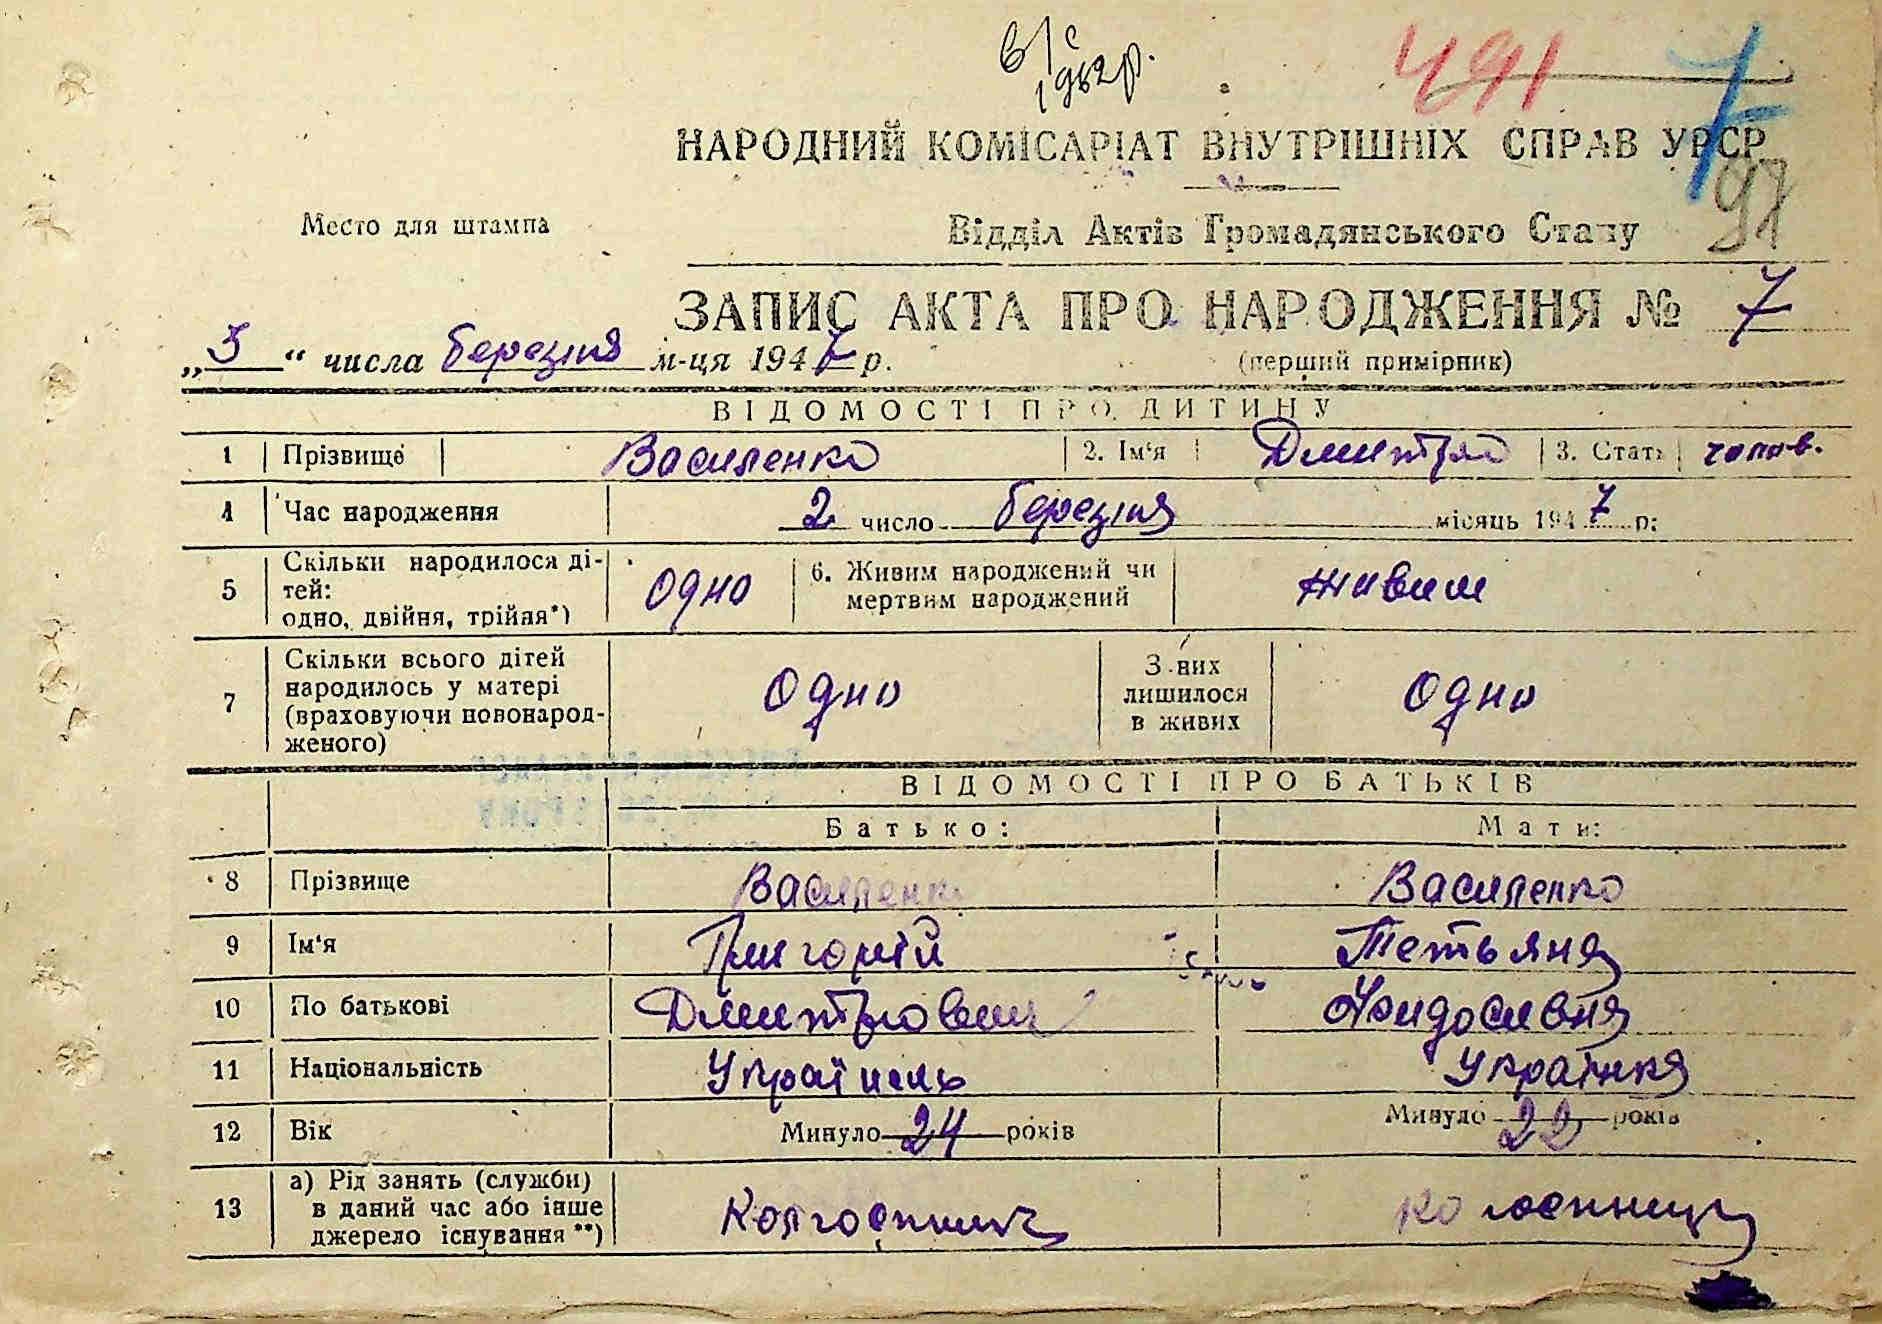 в/с
1962р.
491
7
НАРОДНИЙ КОМІСАРІАТ ВНУТРІШНІХ СПРАВ УРСР
97
Место для штампа
Відділ Актів Громадянського Стану
ЗАПИС АКТА ПРО НАРОДЖЕННЯ № 7
„ 3 “ числа березня м-ця 1947 р.
(перший примірник)
ВІДОМОСТІ ПРО ДИТИНУ
1 Прізвище Василенко 2. Ім‘я Дмитро 3. Стать чолов.
4 Час народження 2 число березня місяць 1947 р:
5 Скільки народилося ді-
тей:
одно, двійня, трійня*)
одно
6. Живим народжений чи
мертвим народжений
живим
7 Скільки всього дітей
народилось у матері
(враховуючи новонарод-
женого)
одно
З них
лишилося
в живих
одно
ВІДОМОСТІ ПРО БАТЬКІВ
Батько: Мати:
8 Прізвище Василенко Василенко
9 Ім‘я Григорій Тетьяна
10 По батькові Дмитрович
11 Національність Українець Українка
12 Вік Минуло 24 років Минуло 22 років
13 а) Рід занять (служби)
в даний час або інше
джерело існування **)
Колгоспник колгоспниця